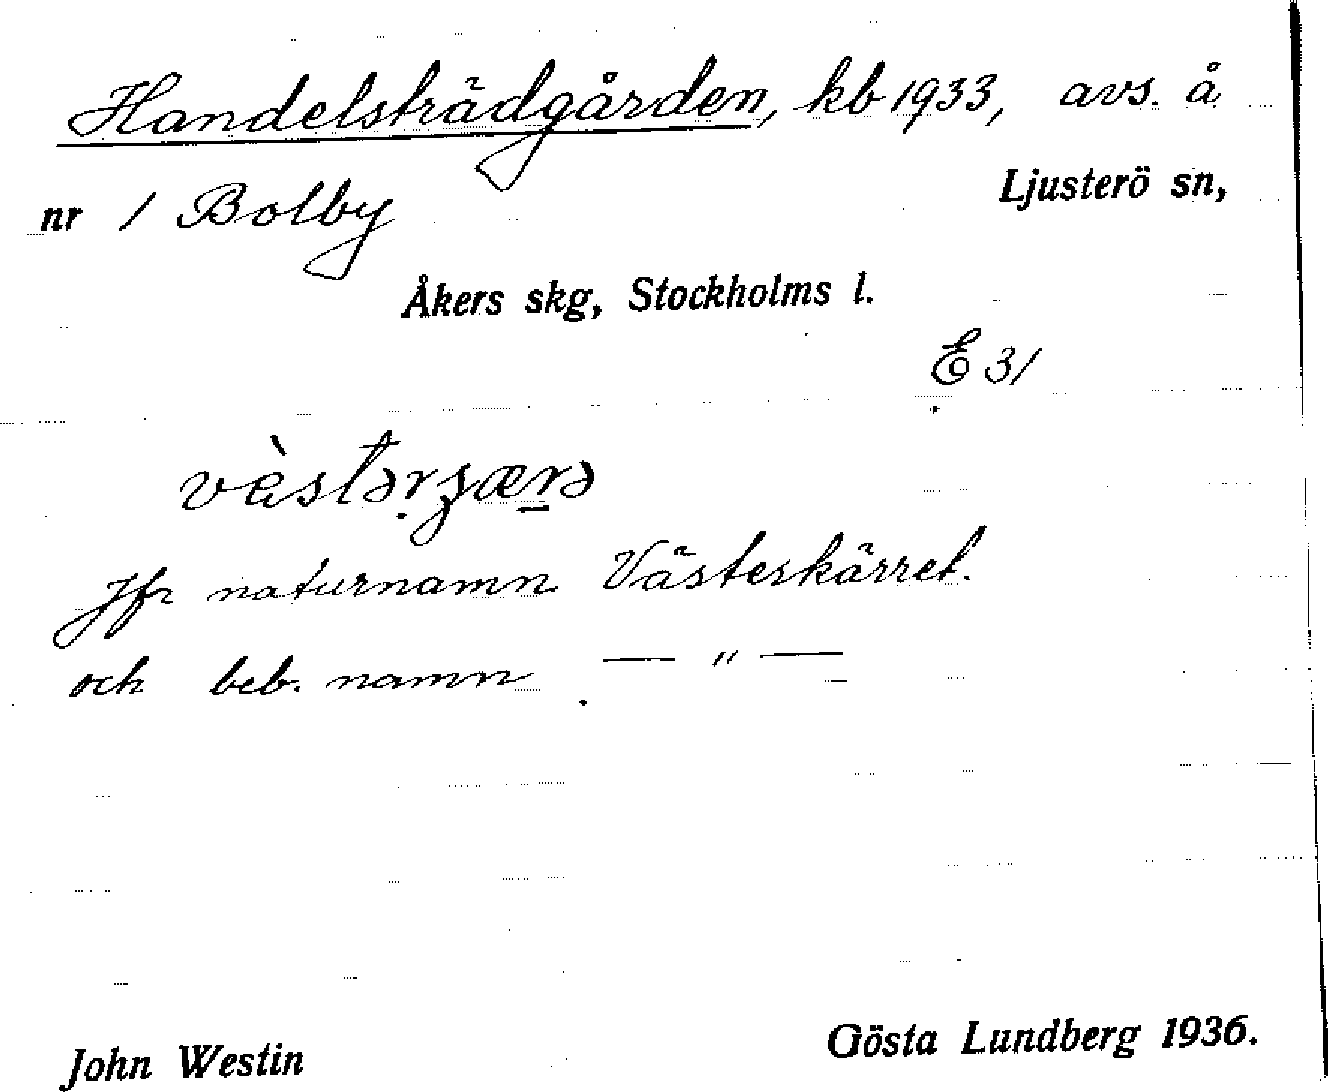 Handelsträdgården, kb 1933, avs. å
nr 1 Bolby Ljusterö sn,
Åkers skg, Stockholms l.
E 31
Jfr naturnamn Västerkärret.
och beb. namn — " —
John Westin Gösta Lundberg 1936.